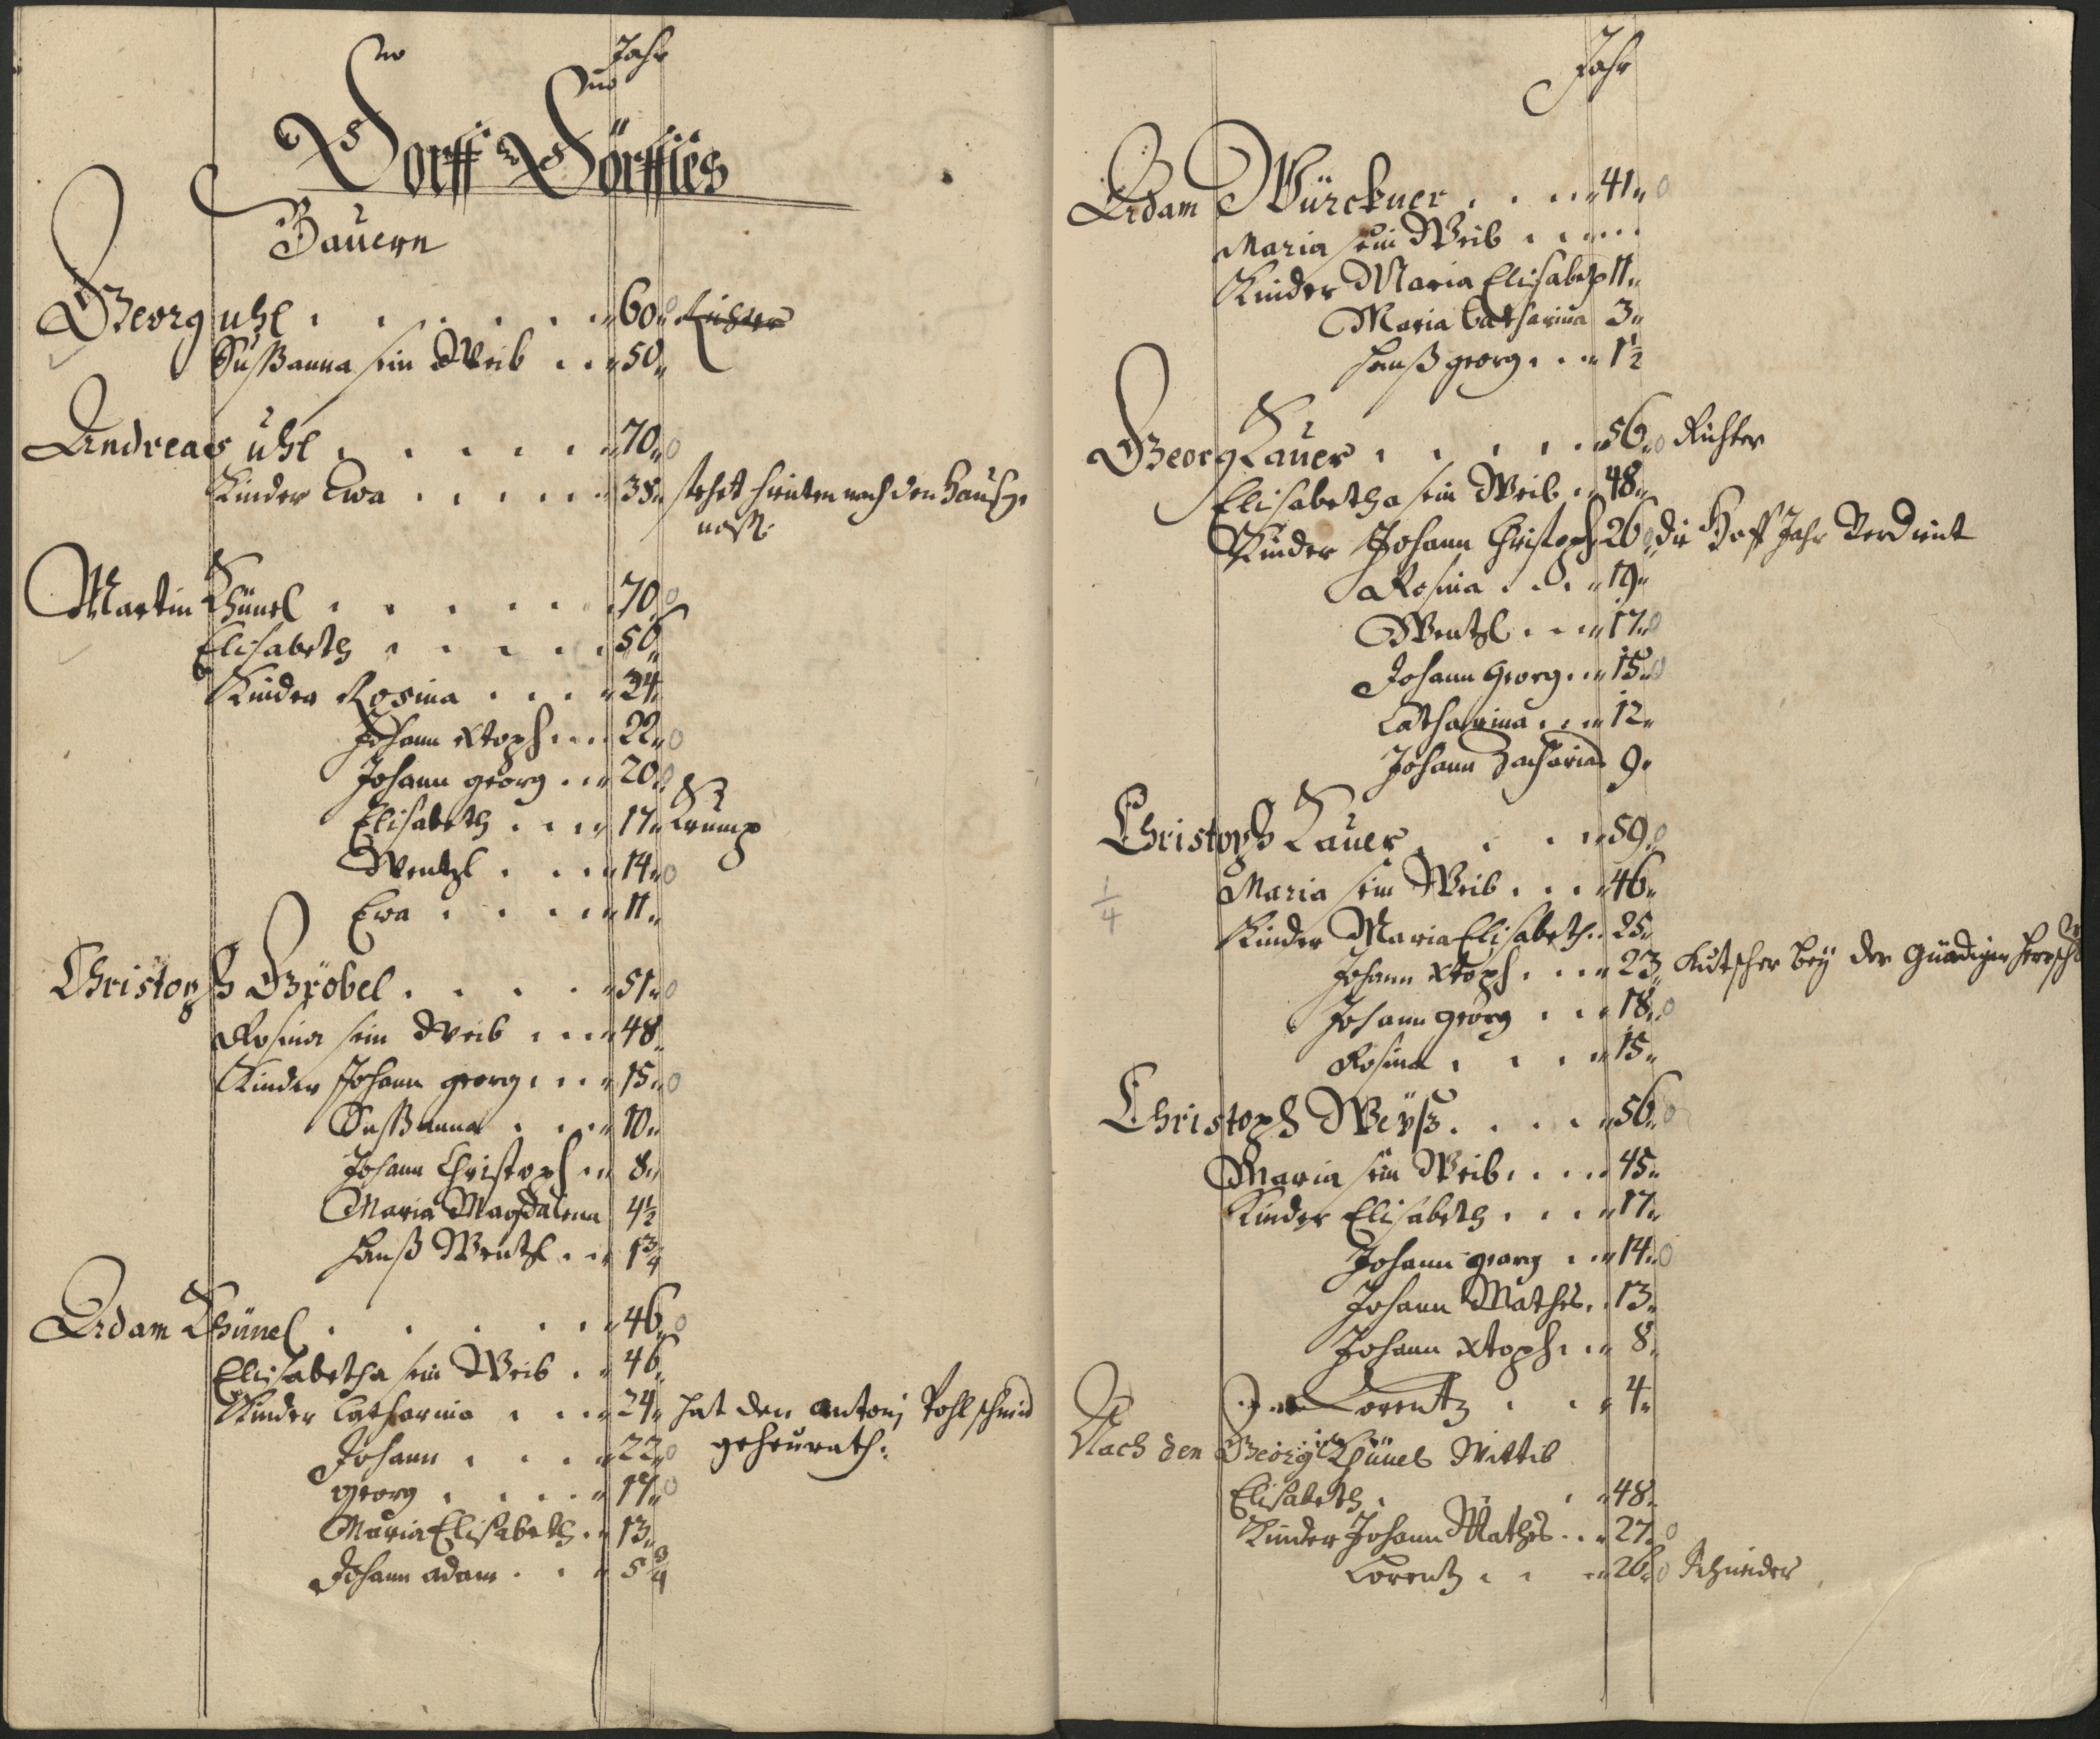 Jahr
Dorff Dörffles
Bauern
Georg Uhl . . . . . . 60 Richter
Sußanna sein Weib . . 50
Andreas Uhl . . . . . 70
Kinder Ewa . . . . . 38 stehet hinten nach den Hausge
noß:
Martin Khünel . . . . . . 70
Elisabeth . . . . . 56
Kinder Rosina . . . 24
Johann Xtoph . . . 22
Johann georg . . 20
Elisabeth . . . 17 Krump
Wentzl . . . 14
Ewa . . . . 11
Christoph Gröbel . . . . 51
Rosina sein Weib . . . 48
Kinder Johann georg . . . 15
Sußanna . . . 10
Johann Christoph . . 8
Maria Magdalena 4½
Hanß Wentzl . . 1¾
Adam Khünel . . . . . . 46
Elisabetha sein Weib . . 46
Kinder Catharina . . . 24 hat den Antonj Pohl schmid
Johann . . . . 22 geheurath:
georg . . . . . 17
Maria Elisabeth . . 13
Johann adam . . . 5¾
Jahr
Adam Würckner . . . . 41
Maria sein Weib . . . . .
Kinder Maria Elisabeth 11
Maria Catharina 3
Hanß georg . . . 1½
Georg Lauer . . . . . 56 Richter
Elisabetha sein Weib . . 48
Kinder Johann Christoph 26 die Hoff Jahr Verdient
Rosina . . . . 19
Wentzl . . . 17
Johann Georg . . . 15
Catharina . . . 12
Johann Zacharias 9
Christoph Lauer . . . . 59
Maria sein Weib . . . 46
¼
Kinder Maria Elisabeth . . 25
Johann Xtoph . . . . 23 Kutscher bey der Gnädigen Herrsch
Johann Georg . . . 18
Rosina . . . . 15
Christoph Weyß . . . . 56
Maria sein Weib . . . . 45
Kinder Elisabeth . . . 17
Johann georg . . . 14
Johann Mathes . . 13
Johann Xtoph . . . 8
Lorentz . . . 4
Nach den Georg Khünel Wittib
Elisabeth . . . . 48
Kinder Johann Mathes . . . 27
Lorentz . . . . 26 Schneider